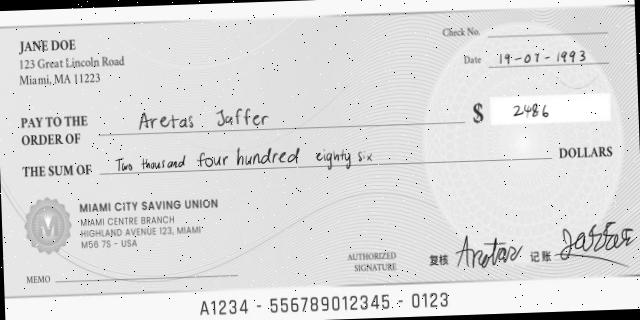 JANE DOE
123 Great Lincoln Road
Miami, MA 11223
Check No.
Date 19-07-1993
PAY TO THE ORDER OF Aretas Jaffer
$ 2486
THE SUM OF Two thousand four hundred eighty six DOLLARS
MIAMI CITY SAVING UNION
MIAMI CENTRE BRANCH
HIGHLAND AVENUE 123, MIAMI
M56 7S - USA
M
MEMO
AUTHORIZED SIGNATURE
复核 Aretas 记账 Jaffer
A1234 - 556789012345 - 0123